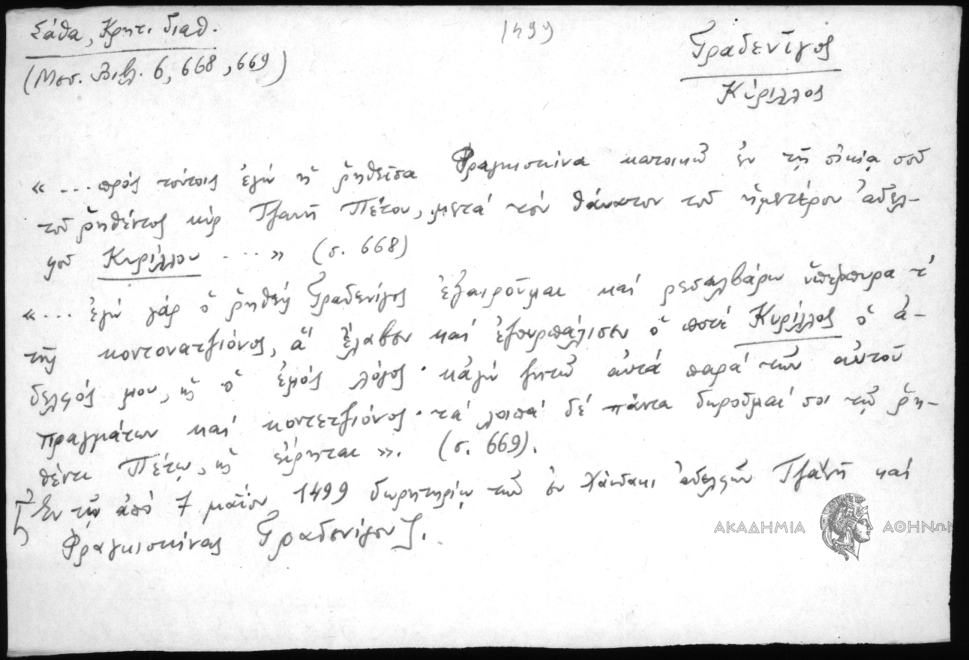 Σάθα, Κρητ. διαθ.
(Μεσ. Βιβλ. 6, 668, 669)
1499
Γραδενῖγος
Κύριλλος
«... πρὸς τούτοις ἐγὼ ἡ ῥηθεῖσα Φραγκισκίνα κατοικῶ ἐν τῇ οἰκίᾳ σου
τοῦ ῥηθέντος κὺρ Τζανῆ Πέτου, μετὰ τὸν θάνατον τοῦ ἡμετέρου ἀδελ-
φοῦ Κυρίλλου ...» (σ. 668)
«... ἐγὼ γὰρ ὁ ῥηθεὶς Γραδενίγος ἐξαιροῦμαι καὶ ρεσαλβάρω ὑπέρπυρα τ'
τῆς κοντονατζιόνος, ἃ ἔλαβεν καὶ ἐξουρπάλισεν ὁ ποτὲ Κυρίλλος ὁ ἀ-
δελφός μου, ὡς ὁ ἐμὸς λόγος· κἀγὼ ζητῶ αὐτὰ παρὰ τῶν αὐτοῦ
πραγμάτων καὶ κοντετζιόνος· τὰ λοιπὰ δὲ πάντα δωροῦμαί σοι τῷ ῥη-
θέντι Πέτῳ, ὡς εἴρηται». (σ. 669).
[Ἐν τῷ ἀπὸ 7 μαΐου 1499 δωρητηρίῳ τῶν ἐν Χάνδακι ἀδελφῶν Τζανῆ καὶ
Φραγκισκίνας Γραδενίγου].
ΑΚΑΔΗΜΙΑ ΑΘΗΝΩΝ